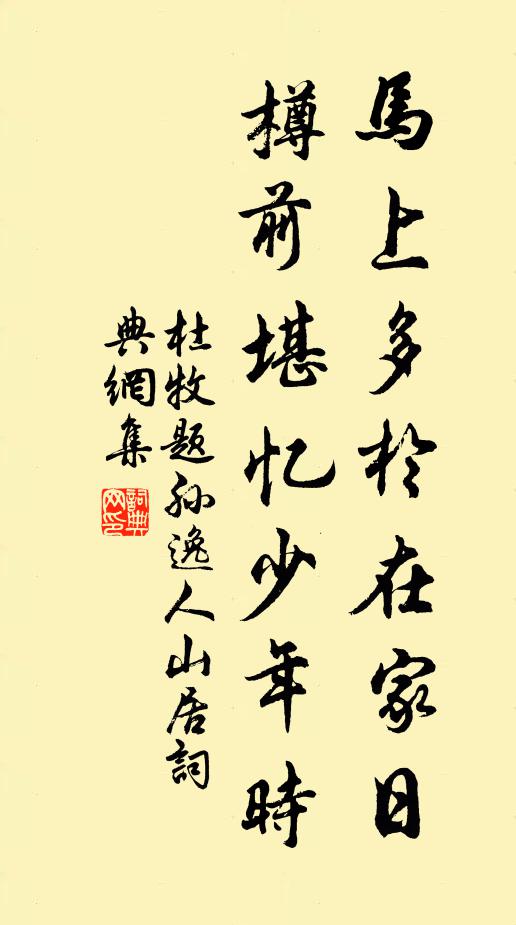 馬上多於在家日
樽前堪忆少年時
杜牧題孙逸人山居詞
典網集
詞典网印